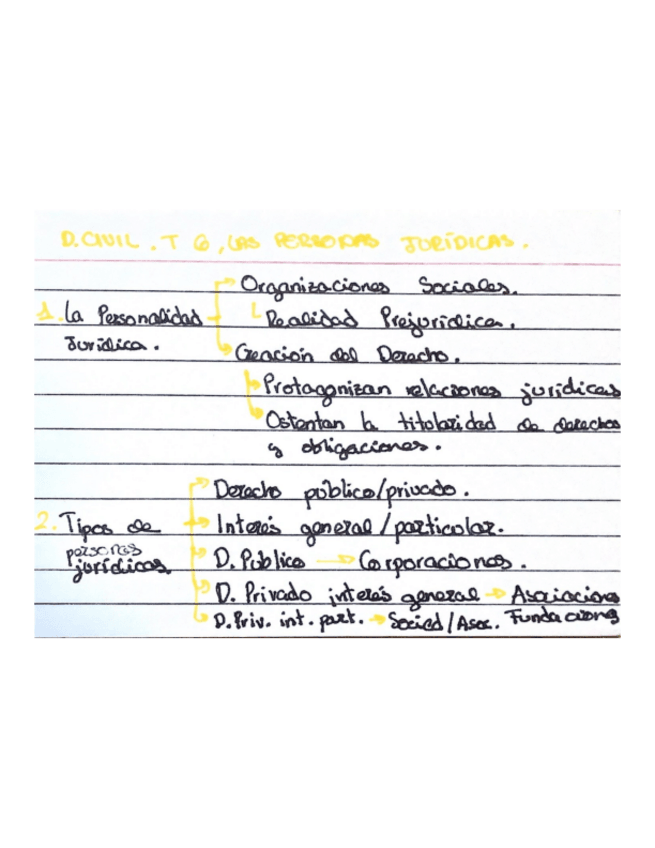 D.CIVIL. T 6, LAS PERSONAS JURÍDICAS.
Organizaciones Sociales.
1. La Personalidad Realidad Prejurídica.
Jurídica. Creación del Derecho.
Protagonizan relaciones jurídicas
Ostentan la titularidad de derechos
y obligaciones.
Derecho público/privado.
2. Tipos de Interés general/particular.
personas
jurídicas D. Público → Corporaciones.
D. Privado interés general → Asociaciones
D. Priv. int. part. → Socied/Asoc. Fundaciones